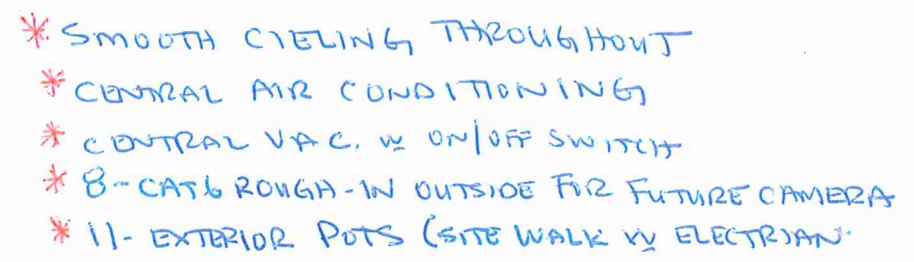 * SMOOTH CIELING THROUGHOUT
* CENTRAL AIR CONDITIONING
* CENTRAL VAC. W ON/OFF SWITCH
* 8-CAT6 ROUGH-IN OUTSIDE FOR FUTURE CAMERA
* 11- EXTERIOR POTS (SITE WALK W ELECTRIAN.